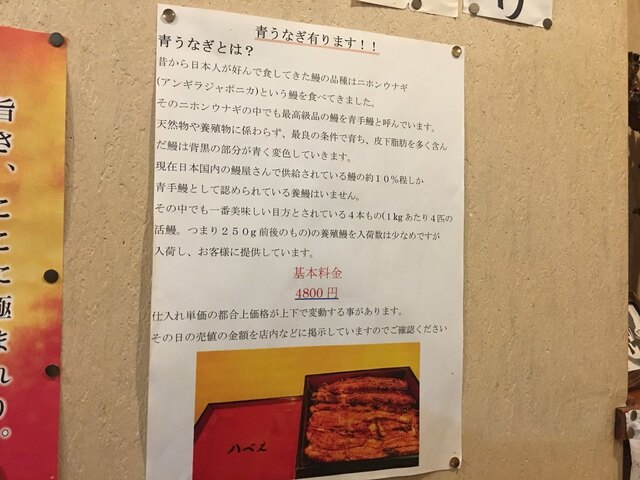 り
青うなぎ有ります！！
青うなぎとは？
昔から日本人が好んで食してきた鰻の品種はニホンウナギ
(アンギラジャポニカ)という鰻を食べてきました。
そのニホンウナギの中でも最高級品の鰻を青手鰻と呼んでいます。
天然物や養殖物に係わらず、最良の条件で育ち、皮下脂肪を多く含ん
だ鰻は背黒の部分が青く変色していきます。
現在日本国内の鰻屋さんで供給されている鰻の約１０％程しか
青手鰻として認められている養鰻はいません。
その中でも一番美味しい目方とされている４本もの(１kgあたり４匹の
活鰻。つまり２５０g前後のもの)の養殖鰻を入荷数は少なめですが
入荷し、お客様に提供しています。
基本料金
4800円
仕入れ単価の都合上価格が上下で変動する事があります。
その日の売値の金額を店内などに掲示していますのでご確認ください
八べえ
旨さ、ここに極まれり。